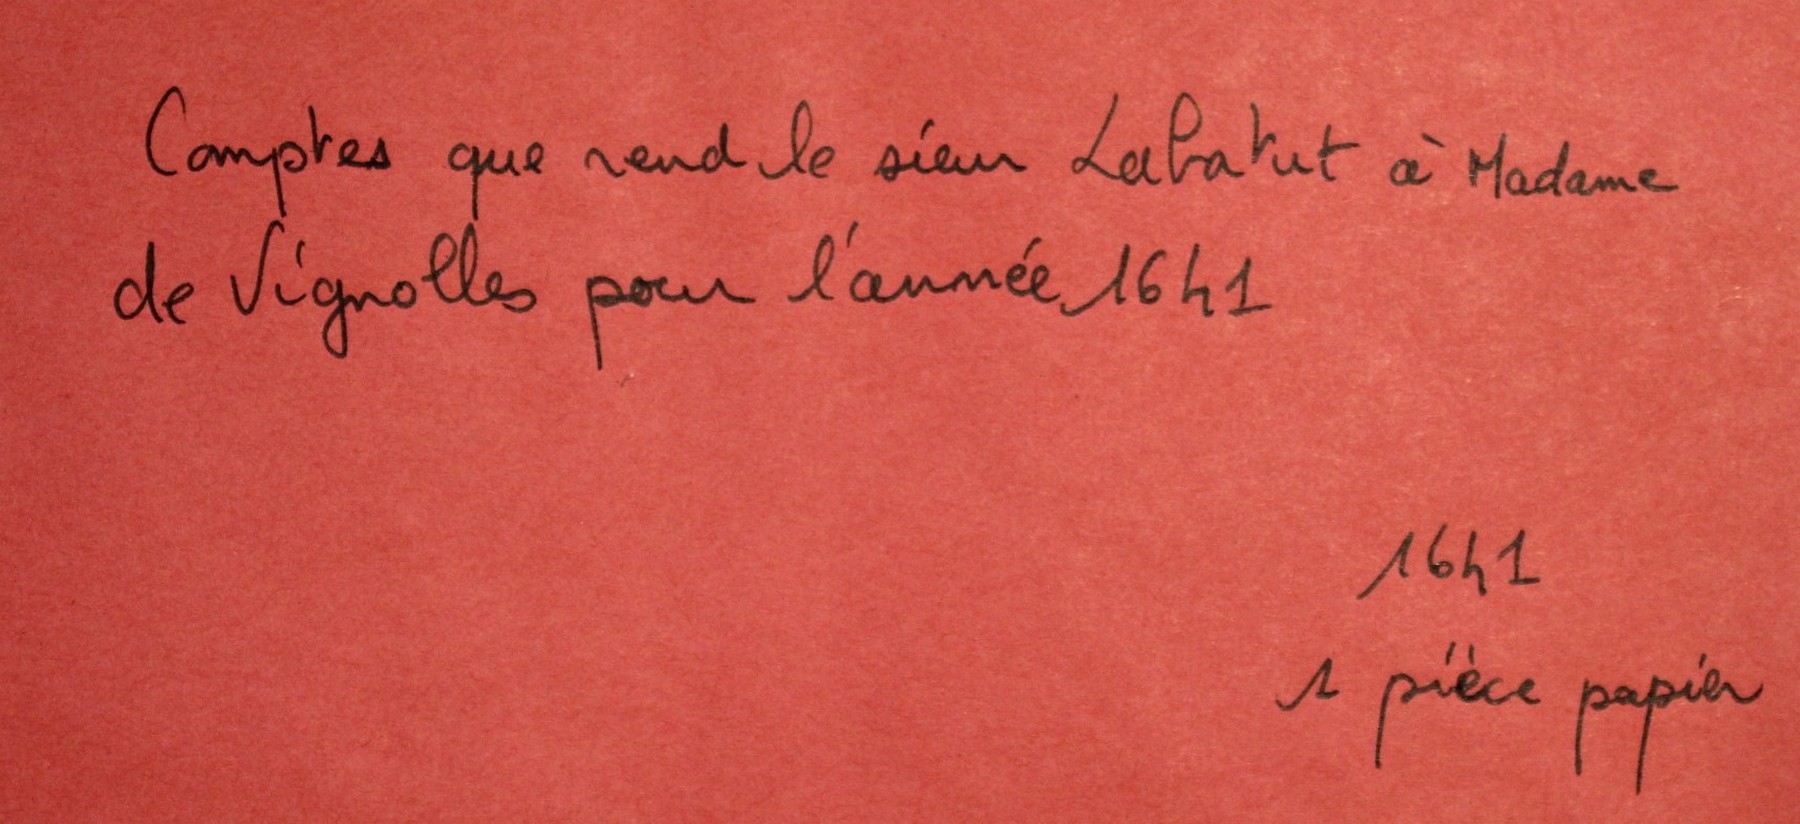 Comptes que rend le sieur Labatut à Madame
de Vignolles pour l'année 1641
1641
1 pièce papier